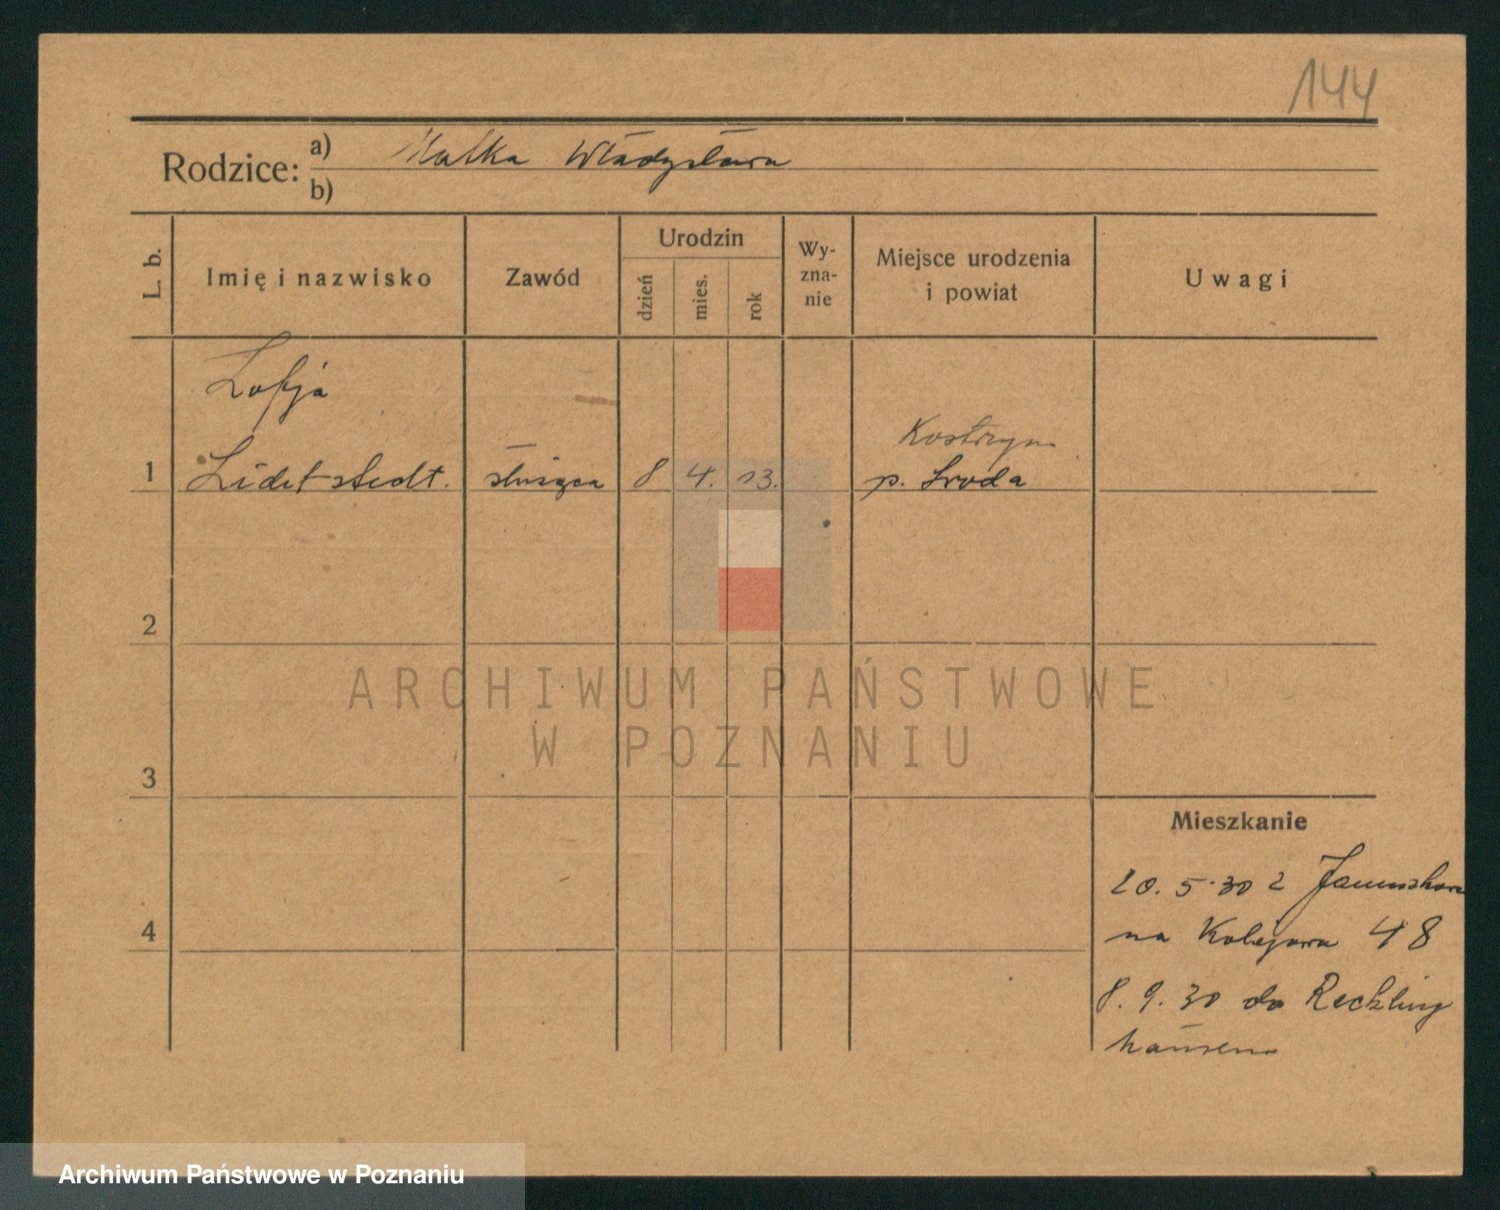 144
Rodzice: a) Matka Władysława
b)
L. b. Imię i nazwisko Zawód Urodzin dzień mies. rok Wy-zna-nie Miejsce urodzenia i powiat Uwagi
Zofja Kostrzyn
1 Lidetstedt. służąca 8 4. 13. p. Sroda
2
ARCHIWUM PAŃSTWOWE
W POZNANIU
3
Mieszkanie
20. 5. 30 z
4 na Kolejowa 48
8. 9. 30 do Reckling
hausen
Archiwum Państwowe w Poznaniu